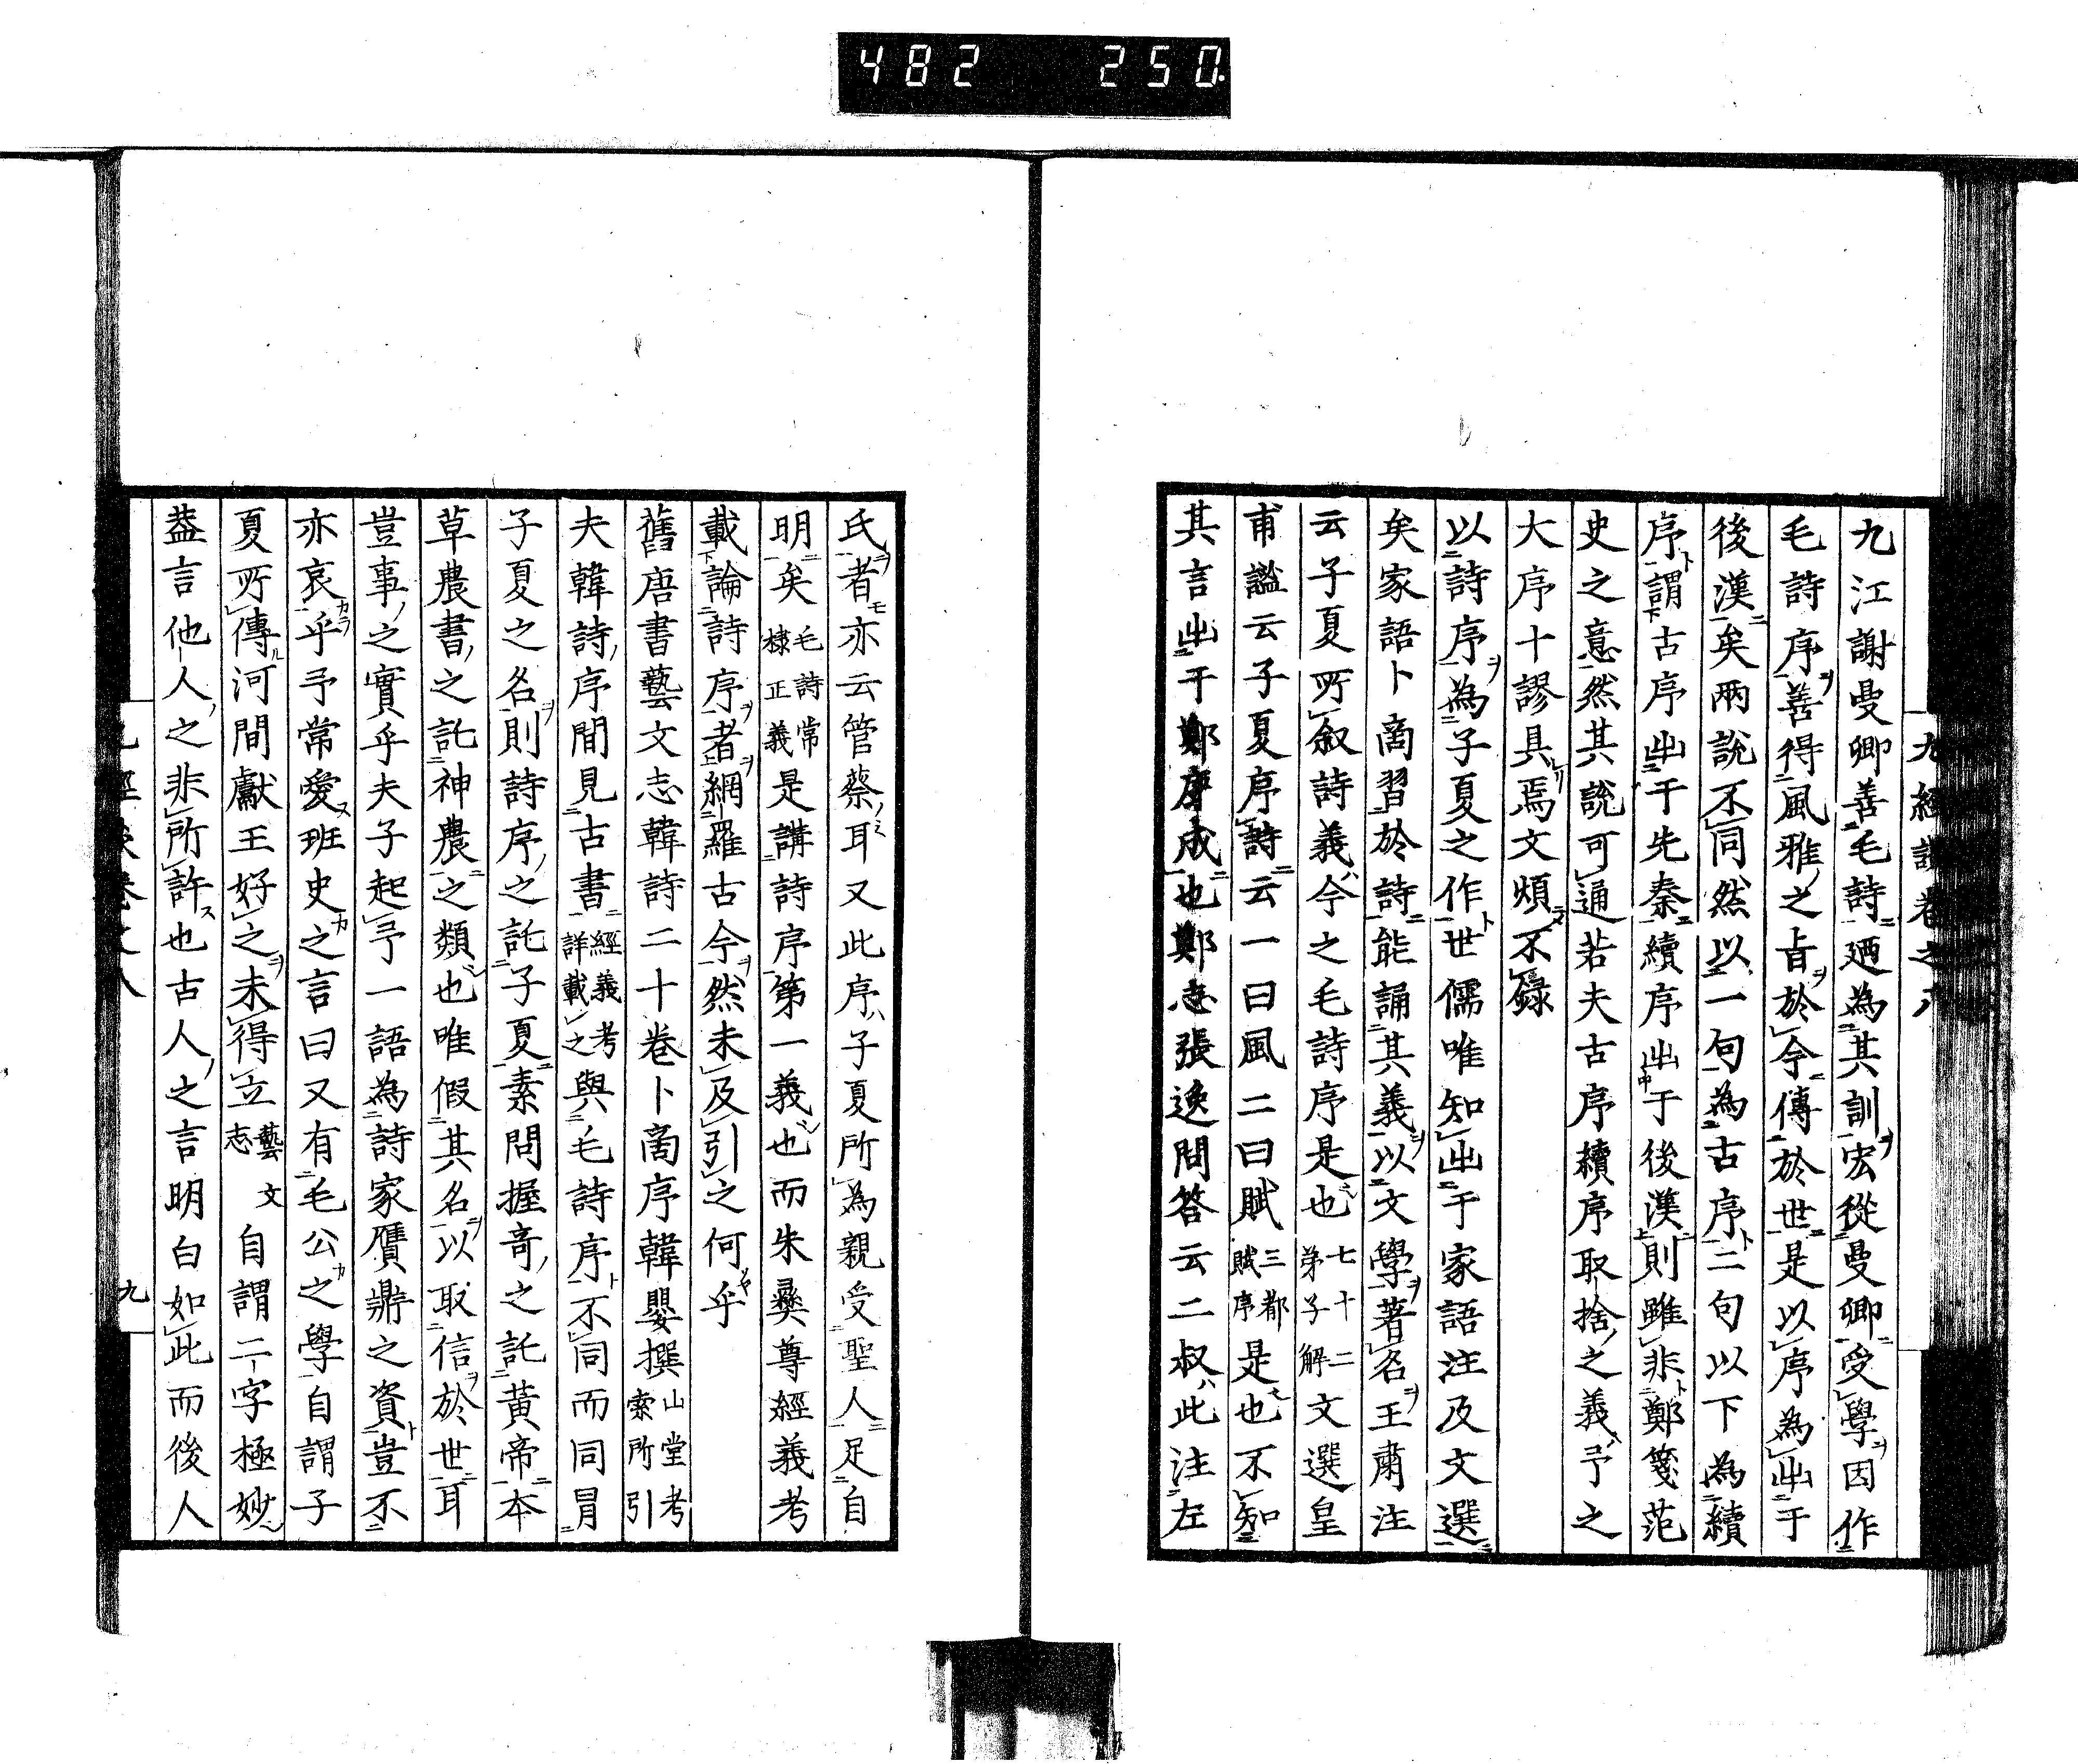 482 250.
九經談卷之八
九江謝曼卿善毛詩廼為其訓宏從曼卿受學因作
毛詩序善得風雅之旨於今傳於世是以序為出于
後漢矣兩說不同然以一句為古序二句以下為續
序謂古序出于先秦續序出于後漢則雖非鄭箋范
史之意然其說可通若夫古序續序取捨之義予之
大序十謬具焉文煩不錄
以詩序為子夏之作世儒唯知出于家語注及文選
矣家語卜啇習於詩能誦其義以文學著名王肅注
云子夏所叙詩義今之毛詩序是也七十二弟子解文選皇
甫謐云子夏序詩云一曰風二曰賦三都賦序是也不知
其言出于鄭康成也鄭志張逸問答云二叔此注左
氏者亦云管蔡耳又此序子夏所為親受聖人足自
明矣毛詩常棣正義是講詩序第一義也而朱彝尊經義考
載論詩序者網羅古今然未及引之何乎
舊唐書藝文志韓詩二十卷卜啇序韓嬰撰山堂考索所引
夫韓詩序間見古書經義考詳載之與毛詩序不同而同冒
子夏之名則詩序之託子夏素問握奇之託黃帝本
草農書之託神農之類也唯假其名以取信於世耳
豈事之實乎夫子起予一語為詩家贋鼎之資豈不
亦哀乎予常愛班史之言曰又有毛公之學自謂子
夏所傳河間獻王好之未得立藝文志自謂二字極妙
蓋言他人之非所許也古人之言明白如此而後人
九經談卷之八
九